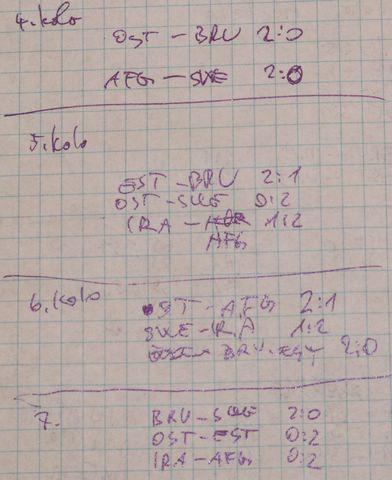 4. kolo
OST - BRU 2:0
AFG - SWE 2:0
5. kolo
EST - BRU 2:1
OST - SWE 0:2
IRA - 1:2
AFG
6. kolo
OST - AFG 2:1
SWE - IRA 1:2
BRU - EST 2:0
7.
BRU - SWE 2:0
OST - EST 0:2
IRA - AFG 0:2